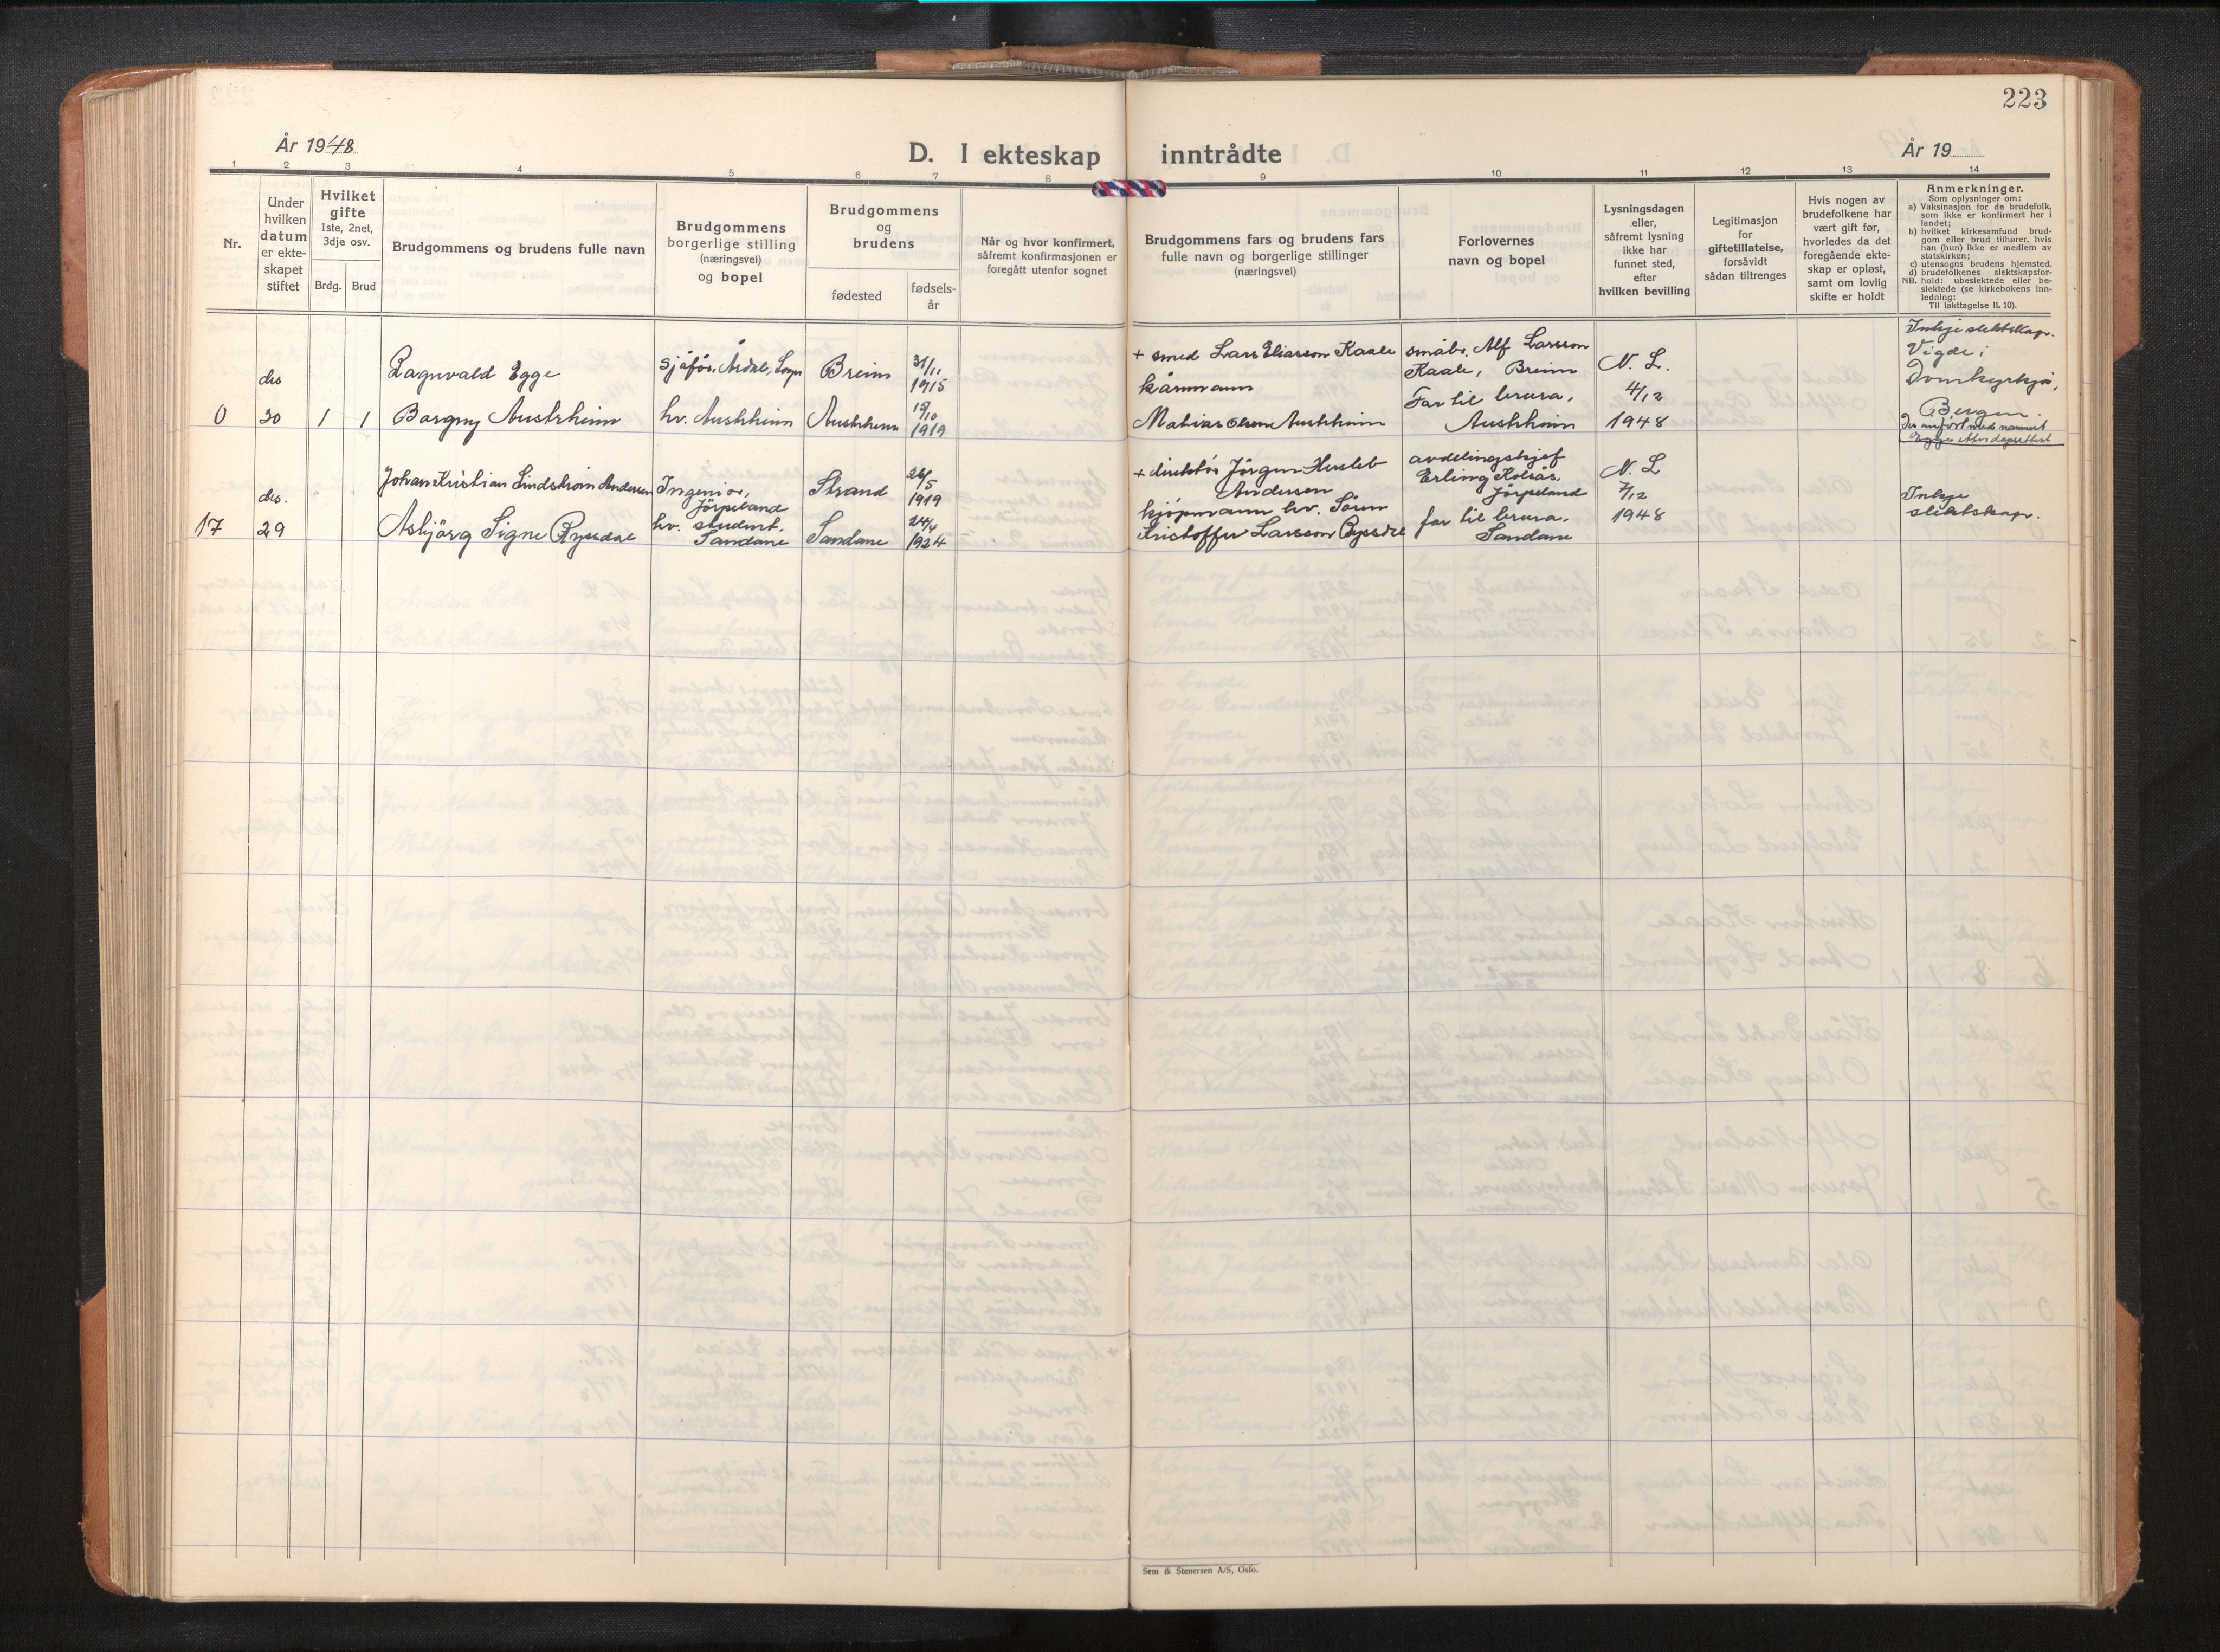 223
År 1948
D. I ekteskap inntrådte
År 19
1 2 3 4 5 6 7 8 9 10 11 12 13 14
Nr.
Under
hvilken
datum
er ekte-
skapet
stiftet
Hvilket
gifte
1ste, 2net,
3dje osv.
Brdg. Brud
Brudgommens og brudens fulle navn
Brudgommens
borgerlige stilling
(næringsvei)
og bopel
Brudgommens
og
brudens
fødested
fødsels-
år
Når og hvor konfirmert,
såfremt konfirmasjonen er
foregått utenfor sognet
Brudgommens fars og brudens fars
fulle navn og borgerlige stillinger
(næringsvei)
Forlovernes
navn og bopel
Lysningsdagen
eller,
såfremt lysning
ikke har
funnet sted,
efter
hvilken bevilling
Legitimasjon
for
giftetillatelse,
forsåvidt
sådan tiltrenges
Hvis nogen av
brudefolkene har
vært gift før,
hvorledes da det
foregående ekte-
skap er opløst,
samt om lovlig
skifte er holdt
Anmerkninger.
Som oplysninger om:
a) Vaksinasjon for de brudefolk,
som ikke er konfirmert her i
landet;
b) hvilket kirkesamfund brud-
gom eller brud tilhører, hvis
han (hun) ikke er medlem av
statskirken;
c) utensogns brudens hjemsted.
d) brudefolkenes slektskapsfor-
NB. hold: ubeslektede eller be-
slektede (se kirkebokens inn-
ledning:
Til iakttagelse II. 10).
0
des
30
1 1
Ragnvald Egge
Borgny Austrheim
sjåfør, Årdal, Sogn
hv. Austrheim
Breim
Austrheim
31/11
1915
18/10
1919
+ smed Lars Eliasson Kaale
kårmann
Matias Olsson Austrheim
småbr. Alf Larsson
Kaale, Breim
Far til brura,
Austrheim
N. L.
4/12
1948
Inkje slektskap.
Vigde i
Domkyrkja,
Bergen.
17
des.
29
Johan Kristian Lindstrøm Andersen
Asbjörg Signe Ryssdal
Ingeniør,
Jörpeland
hv. student.
Sandane
Strand
Sandane
26/5
1919
24/4
1924
+ direktør Jörgen Hersleb
Andersen
kjöpmann hv. Sören
Kristoffer Larsson Ryssdal
avdelingsjef
Erling Kolsås,
Jörpeland
far til brura.
Sandane
N. L
7/12
1948
Inkje
slektskap.
Sem & Stenersen A/S, Oslo.